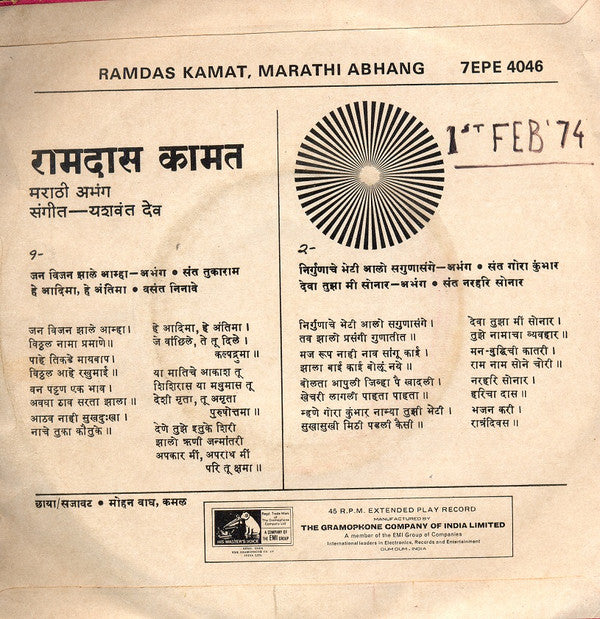 RAMDAS KAMAT, MARATHI ABHANG 7EPE 4046
1ST FEB '74
रामदास कामत
मराठी अभंग
संगीत—यशवंत देव
१-
जन विजन झाले आम्हा—अभंग • संत तुकाराम
हे आदिमा, हे अंतिमा • वसंत निनावे
जन विजन झाले आम्हा।
विठ्ठल नामा प्रमाणे॥
पाहे तिकडे मायबाप।
विठ्ठल आहे रखुमाई॥
वन पट्टण एक भाव।
अवघा ठाव सरता झाला॥
आठव नाही सुखदुःखा।
नाचे तुका कौतुके॥
हे आदिमा, हे अंतिमा।
जे वांछिले, ते तू दिले।
कल्पद्रुमा॥
या मातिचे आकाश तू
शिशिरास या मधुमास तू
देशी मृता, तू अमृता
पुरुषोत्तमा॥
देणे तुझे इतुके शिरी
झालो ऋणी जन्मांतरी
अपकार मीं, अपराध मीं
परि तू क्षमा॥
2-
निर्गुणाचे भेटी आलो सगुणासंगे—अभंग • संत गोरा कुंभार
देवा तुझा मी सोनार—अभंग • संत नरहरि सोनार
निर्गुणाचे भेटी आलो सगुणासंगे।
तव झालो प्रसंगी गुणातीत॥
मज रूप नाही नाव सांगू काई।
झाला बाई काई बोलूं नये॥
बोलता आपुली जिव्हा पै खादली।
खेचरी लागली पाहता पाहता॥
म्हणे गोरा कुंभार नाम्या तुझी भेटी।
सुखासुखी मिठी पडली कैसी॥
देवा तुझा मीं सोनार।
तुझे नामाचा व्यवहार॥
मन-बुध्दिची कातरी।
राम नाम सोने चोरी॥
नरहरि सोनार।
हरिचा दास॥
भजन करी।
रात्रंदिवस॥
छाया/सजावट • मोहन वाघ, कमल
HIS MASTER'S VOICE
A COMPANY OF
THE EMI GROUP
45 R.P.M. EXTENDED PLAY RECORD
MANUFACTURED BY
THE GRAMOPHONE COMPANY OF INDIA LIMITED
A member of the EMI Group of Companies
International leaders in Electronics, Records and Entertainment
DUM DUM, INDIA